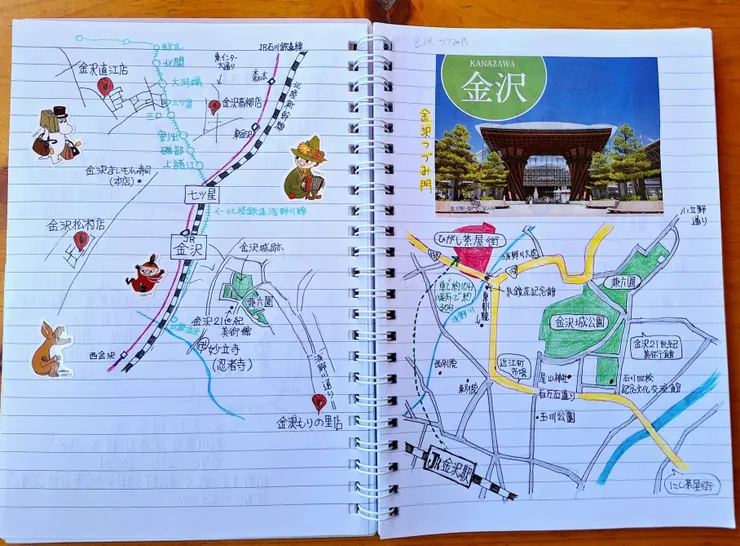 JR石川鉄道線
金沢直江店
北間
大河端
三ツ屋
三口
割出
磯部
上諸江
東インター大通り
金沢高柳店
森本
東金沢
北陸新幹線
金沢まいもん寿司
(本店)
七ツ屋
←北陸鉄道浅野川線
金沢松村店
JR
金沢
金沢城跡
兼六園
金沢21世紀
美術館
卍妙立寺
(忍者寺)
西金沢
金沢もりの里店
金沢つづみ門
KANAZAWA
金沢
金沢つづみ門
小立野
通り
ひがし茶屋街
浅野川大橋
泉鏡花記念館
浅野川
兼六園
金沢城公園
金沢21世紀
美術館
西別院
東別院
近江町
市場
尾山神社
百万石通り
玉川公園
石川四高
記念文化交流館
JR金沢駅
にし茶屋街